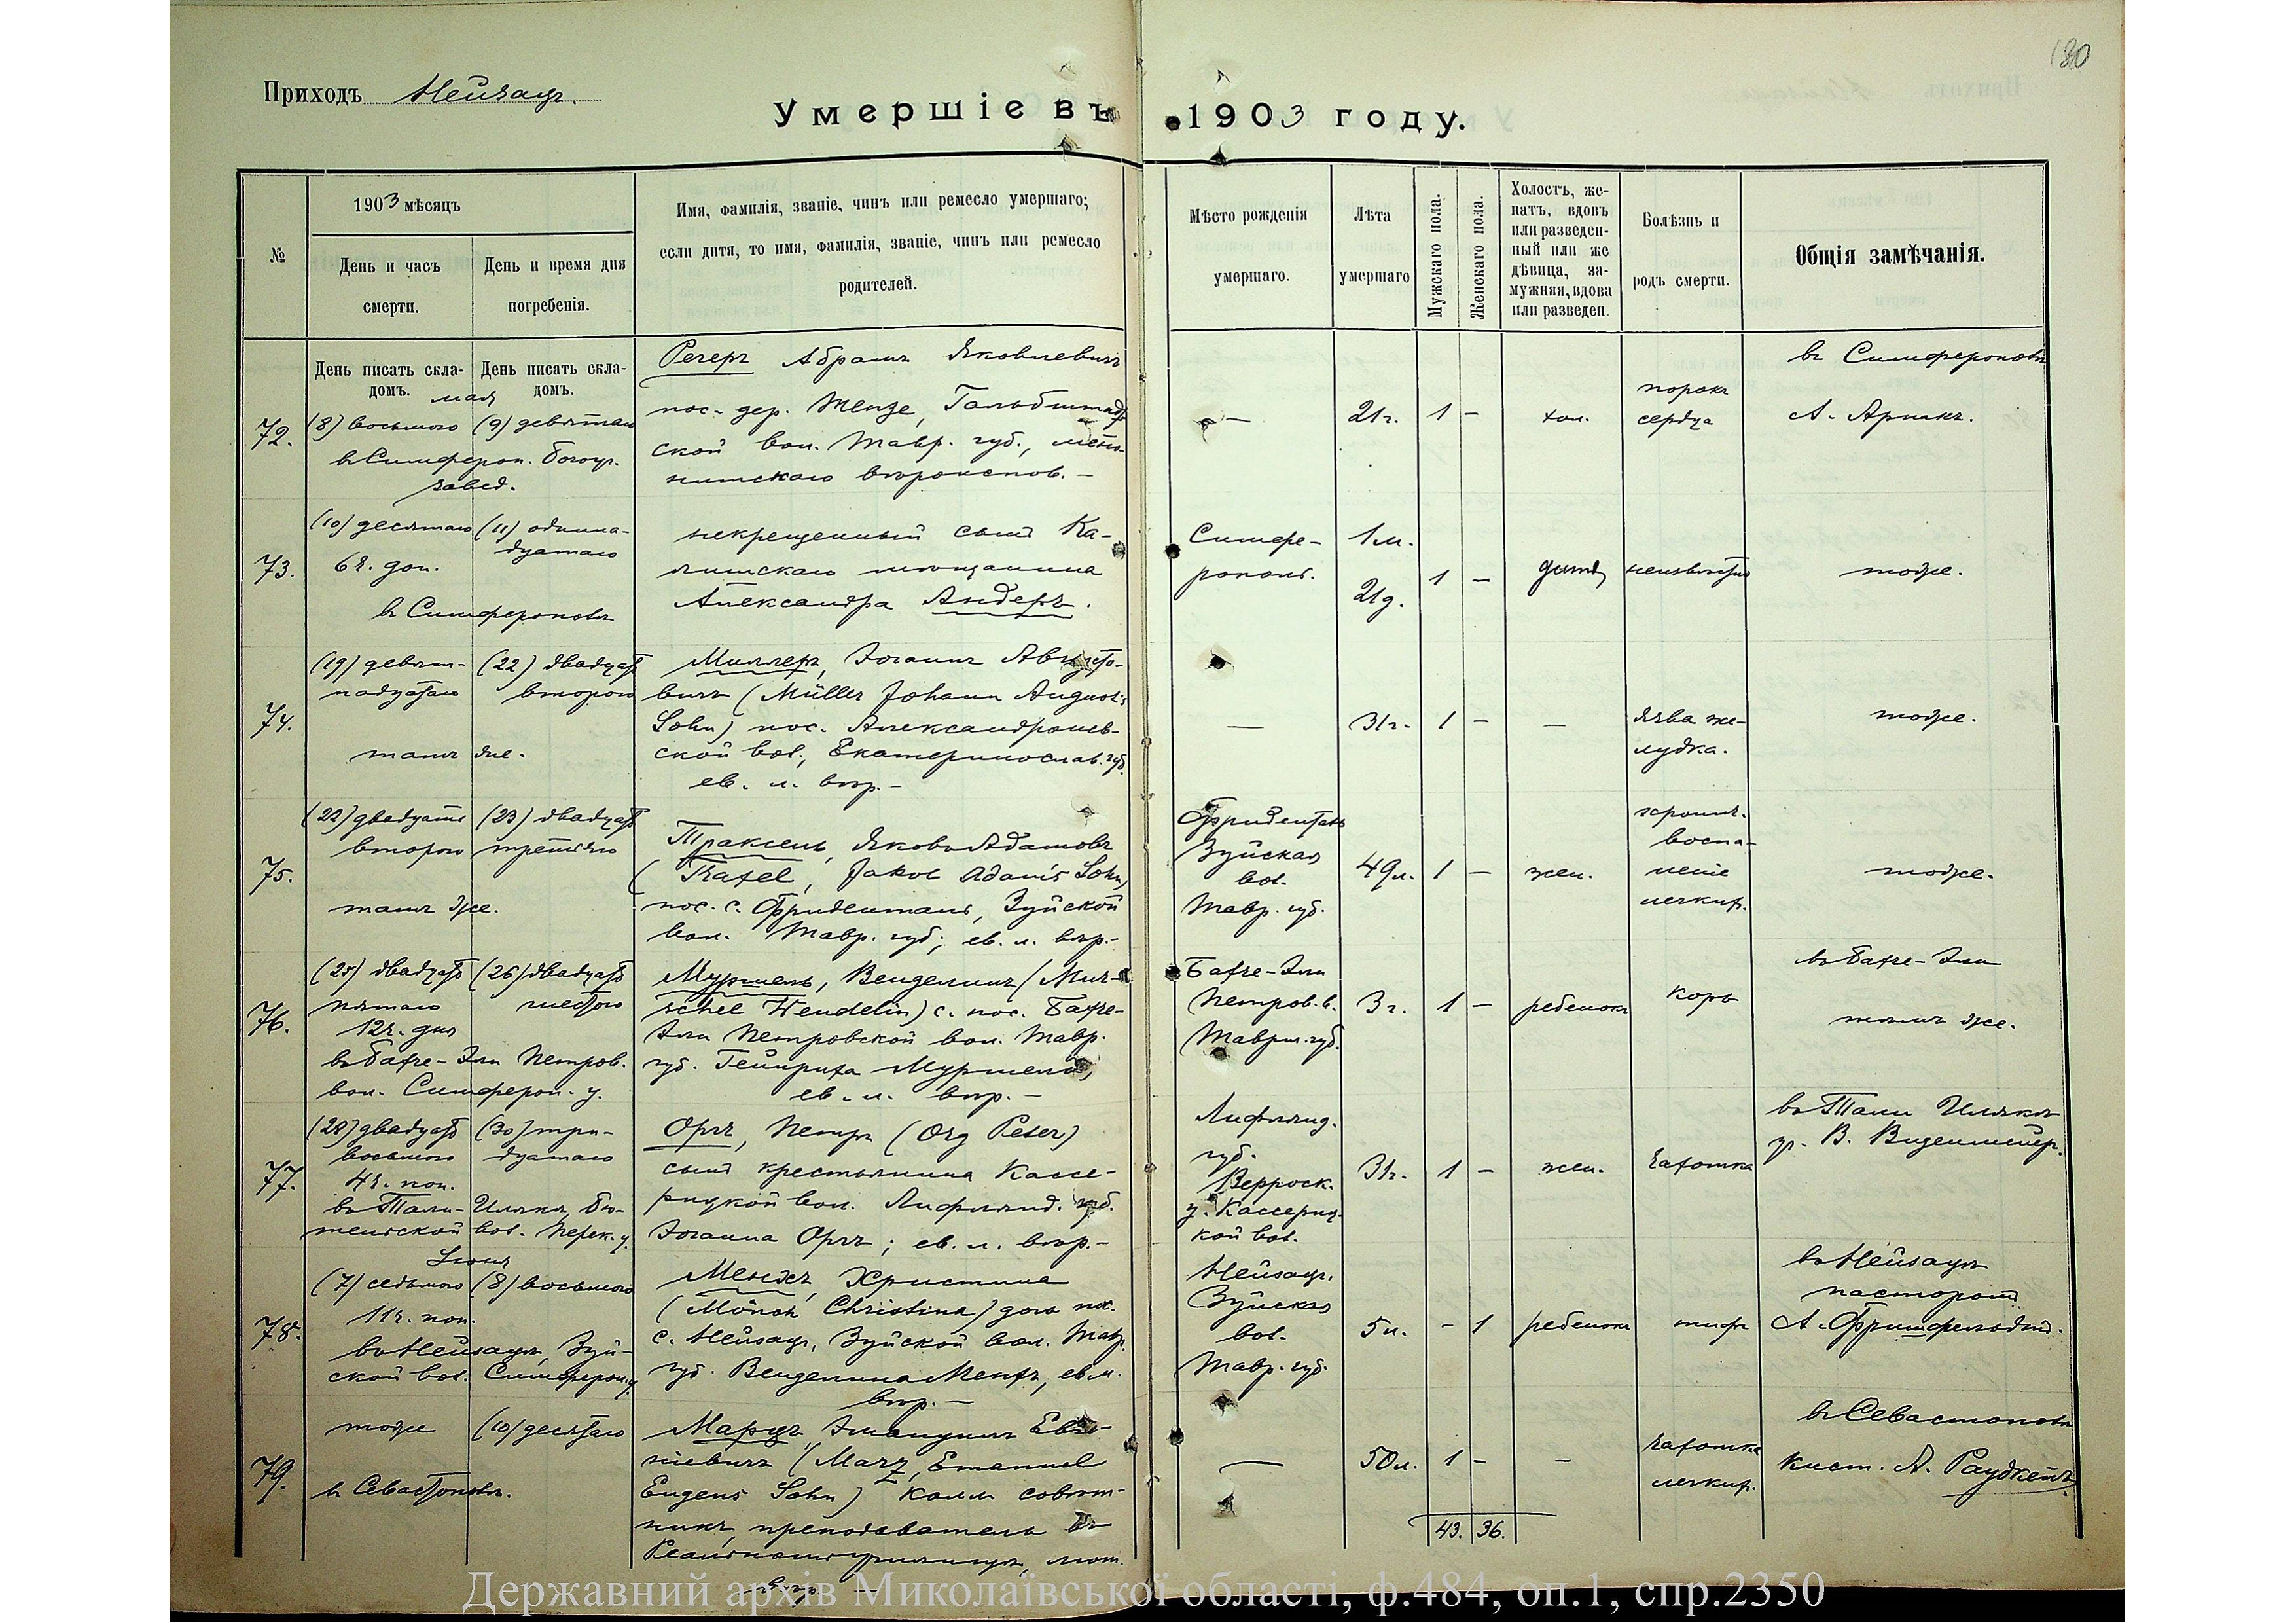 180
Приходъ Нейзацъ.
Умершіе въ 1903 году.
№
1903 мѣсяцъ
День и часъ смерти.
День и время дня погребенія.
Имя, фамилія, званіе, чинъ или ремесло умершаго;
если дитя, то имя, фамилія, званіе, чинъ или ремесло
родителей.
Мѣсто рожденія
умершаго.
Лѣта
умершаго
Мужскаго пола.
Женскаго пола.
Холостъ, же-
натъ, вдовъ
или разведен-
ный или же
дѣвица, за-
мужняя, вдова
или развед.
Болѣзнь и
родъ смерти.
Общія замѣчанія.
День писать скла-
домъ.
День писать скла-
домъ.
мая
72.
(8) восьмого
(9) девятаго
въ Симфероп. богоуг.
завед.
Регеръ Абрамъ Яковлевичъ
пос. дер. Тенге, Гальбштадт-
ской вол. Тавр. губ., мено-
нитскаго вѣроиспов. –
—
21г.
1
–
хол.
порокъ
сердца
въ Симферополѣ
А. Арпакъ.
73.
(10) десятаго
6ч. доп.
(11) одинна-
дцатаго
въ Симферополѣ
некрещенный сынъ Ка-
мѣщанина
Александра Андеръ.
Симфе-
рополь.
1м.
21д.
1
–
дитя
неизвѣстно
тоже.
74.
(19) девят-
надцатаго
(22) двадцать
второго
тамъ же.
Миллеръ, Іоганнъ Августо-
вичъ (Müller Johann August's
Sohn) пос. Александроnев-
ской вол., Екатеринослав. губ.
ев. л. вѣр. –
—
31г.
1
–
–
язва же-
лудка.
тоже.
75.
(22) двадцать
второго
(23) двадцать
третьяго
тамъ же.
Траксель, Яковъ Адамовъ
(Traxel, Jakob Adam's Sohn)
пос. с. Фриденталь, Зуйской
вол. Тавр. губ; ев. л. вѣр. –
Фриденталь
Зуйская
вол.
Тавр. губ.
49л.
1
–
жен.
хронич.
воспа-
леніе
легкихъ.
тоже.
76.
(25) двадцать
пятаго
12ч. дня
(26) двадцать
шестого
въ Бахче-Эли Петров.
вол. Симфероп. у.
Муршель, Венделинъ (Mur-
schel Wendelin) с. пос. Бахче-
Эли Петровской вол. Тавр.
губ. Гейнриха Муршель,
ев. л. вѣр. –
Бахче-Эли
Петров. в.
Таврич. губ.
3г.
1
–
ребенокъ
корь
въ Бахче-Эли
тамъ же.
77.
(28) двадцать
восьмого
4ч. поп.
(30) три-
дцатаго
въ Тали-Иляки, Бю-
тенской вол. Перек. у.
Оргъ, Петръ (Org Peter)
сынъ крестьянина Кассе-
рицкой вол. Лифлянд. губ.
Іоганна Оргъ; ев. л. вѣр. –
Лифлянд.
губ.
Верроск.
у. Кассериц-
кой вол.
31г.
1
–
жен.
чахотка
въ Тали Илякъ
уч. В. Виденмейеръ.
Іюня
78.
(7) седьмого
11ч. поп.
(8) восьмого
въ Нейзацъ, Зуй-
ской вол. Симфероп. у.
Менхъ, Христина
(Mönch Christina) дочь пос.
с. Нейзацъ, Зуйской вол. Тавр.
губ. Венделина Менхъ, ев. л.
вѣр. –
Нейзацъ,
Зуйская
вол.
Тавр. губ.
5л.
–
1
ребенокъ
тифъ
въ Нейзацѣ
пасторомъ
79.
тоже
(10) десятаго
въ Севастополѣ.
Марцъ Эмануилъ Евге-
ніевичъ (Marz, Emanuel
Eugens Sohn) колл. совѣт-
никъ, преподаватель въ
Реальномъ училищѣ, лют.
вѣр.
—
50л.
1
–
–
чахотка
легкихъ.
въ Севастополѣ
кист. А. Раудкепъ.
43. 36.
Державний архів Миколаївської області, ф.484, оп.1, спр.2350